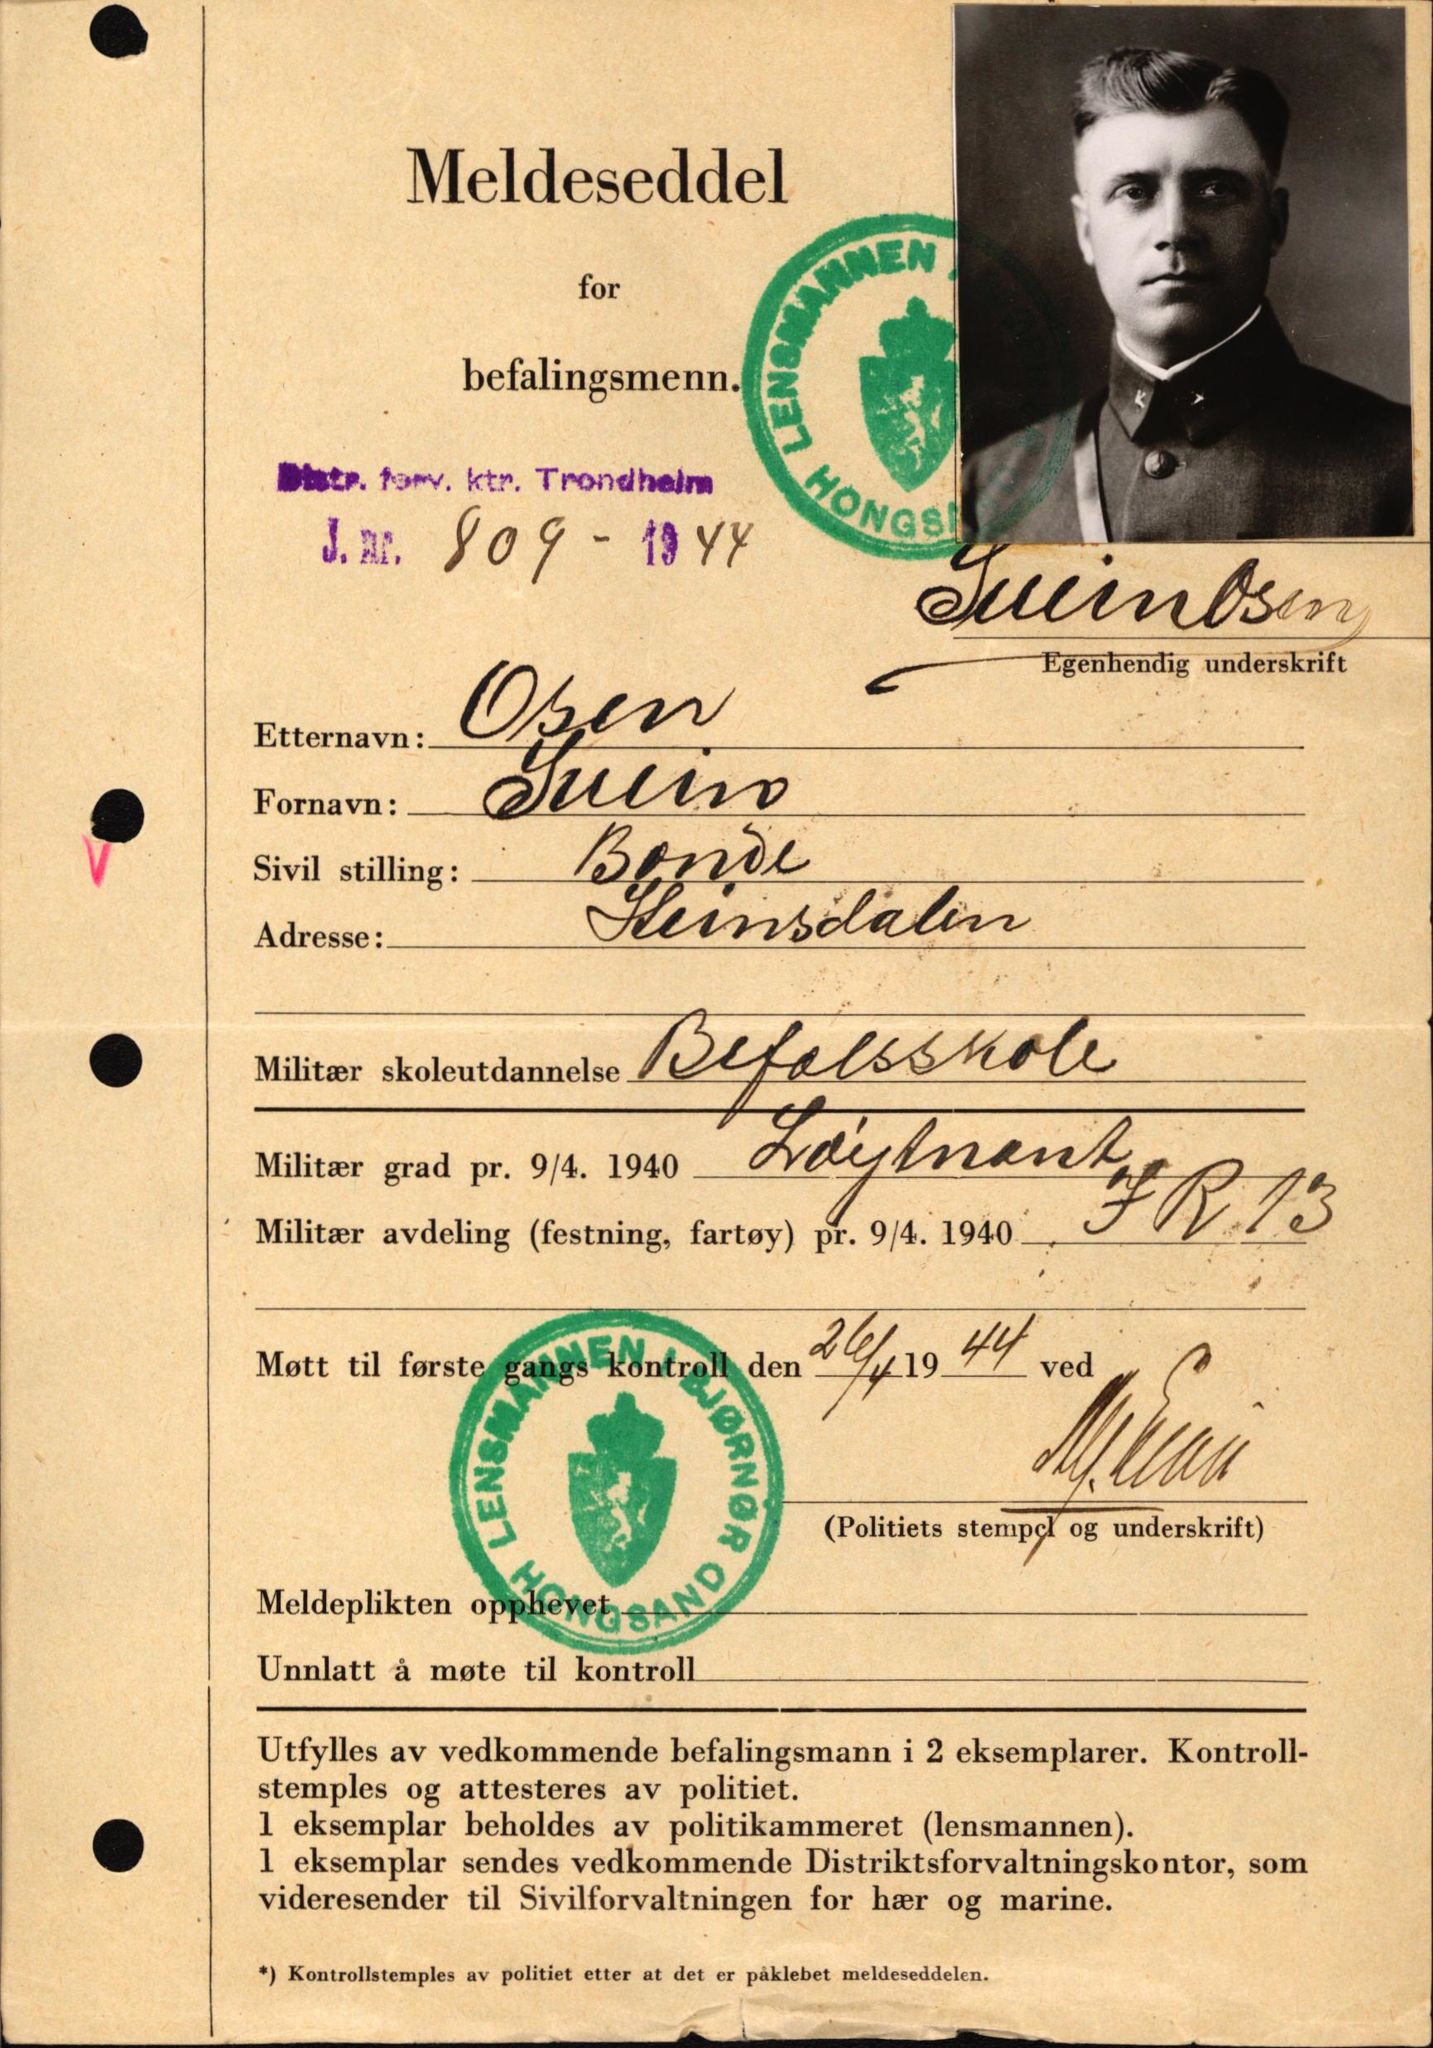 Meldeseddel
for
befalingsmenn.
LENSMANNEN
HONGS
Distr. forv. ktr. Trondheim
J. nr. 809 - 1944
Svein Osen
Egenhendig underskrift
Etternavn: Osen
Fornavn: Svein
Sivil stilling: Bonde
Adresse: Steinsdalen
Militær skoleutdannelse Befalsskole
Militær grad pr. 9/4. 1940 Løytnant
Militær avdeling (festning, fartøy) pr. 9/4. 1940 IR 13
Møtt til første gangs kontroll den 26/4 1944 ved
LENSMANNEN I BJØRNØR
HONGSAND
(Politiets stempel og underskrift)
Meldeplikten opphevet
Unnlatt å møte til kontroll
Utfylles av vedkommende befalingsmann i 2 eksemplarer. Kontroll-
stemples og attesteres av politiet.
1 eksemplar beholdes av politikammeret (lensmannen).
1 eksemplar sendes vedkommende Distriktsforvaltningskontor, som
videresender til Sivilforvaltningen for hær og marine.
*) Kontrollstemples av politiet etter at det er påklebet meldeseddelen.